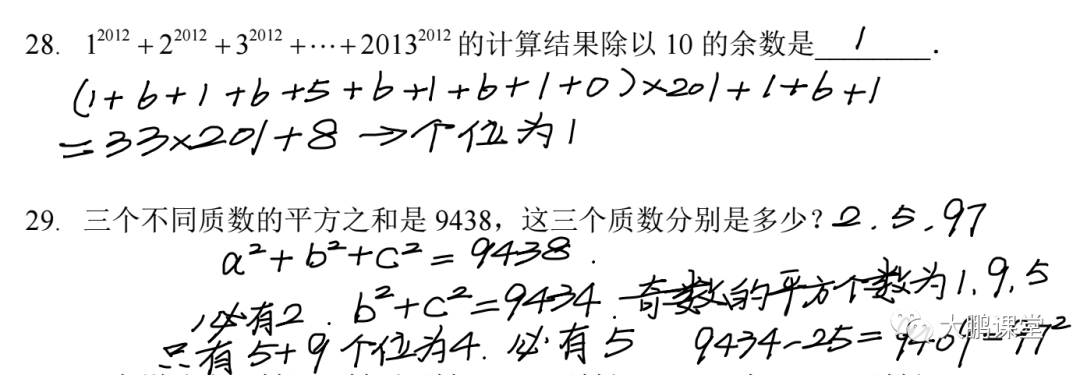 28. 1²⁰¹² + 2²⁰¹² + 3²⁰¹² + ⋯ + 2013²⁰¹² 的计算结果除以 10 的余数是 1 .
(1+6+1+6+5+6+1+6+1+0)×201+1+6+1
=33×201+8 →个位为1
29. 三个不同质数的平方之和是 9438，这三个质数分别是多少？2.5.97
a²+b²+c²=9438.
必有2. b²+c²=9434. 奇数的平方个数为1.9.5
只有5+9个位为4. 必有5 9434-25=9409=97²
大鹏课堂